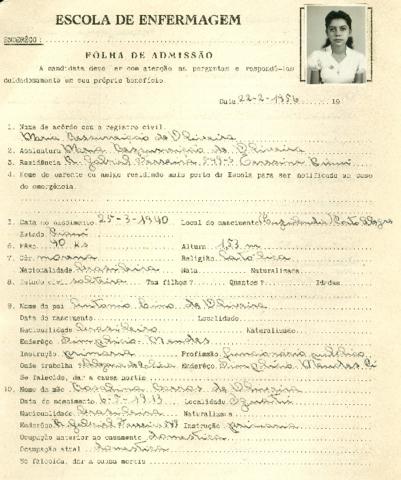 ESCOLA DE ENFERMAGEM
ENDERÊÇO:
FOLHA DE ADMISSÃO
A candidata deve ler com atenção as perguntas e respondê-las
cuidadosamente em seu próprio benefício.
Data 22-2-1956 19
1. Nome de acôrdo com o registro civil.
Maria Ressurreição de Oliveira
2. Assinatura Maria Ressurreição de Oliveira
3. Residência R. Gabriel Ferreira Teresina Piauí
4. Nome do parente ou amigo residindo mais perto da Escola para ser notificado em caso
de emergência.
5. Data do nascimento 25-3-1940 Local do nascimento Porto Alegre
Estado Piauí
6. Pêso 40 ks Altura 1,53 m
7. Côr morena Religião Católica
Nacionalidade Brasileira Nata Naturalizada
8. Estado civil solteira Tem filhos? Quantos? Idades
9. Nome do pai Antonio Lino de Oliveira
Data do nascimento Localidade
Nacionalidade brasileiro Naturalizado
Enderêço Simplício Mendes
Instrução primária Profissão funcionário público
Onde trabalha Enderêço Simplício Mendes Pi
Se falecido, dar a causa mortis
10. Nome da mãe Barros de Oliveira
Data do nascimento 6-5-1913 Localidade
Nacionalidade brasileira Naturalizada
Enderêço R. Gabriel Ferreira Instrução primária
Ocupação anterior ao casamento doméstica
Ocupação atual doméstica
Se falecida, dar a causa mortis